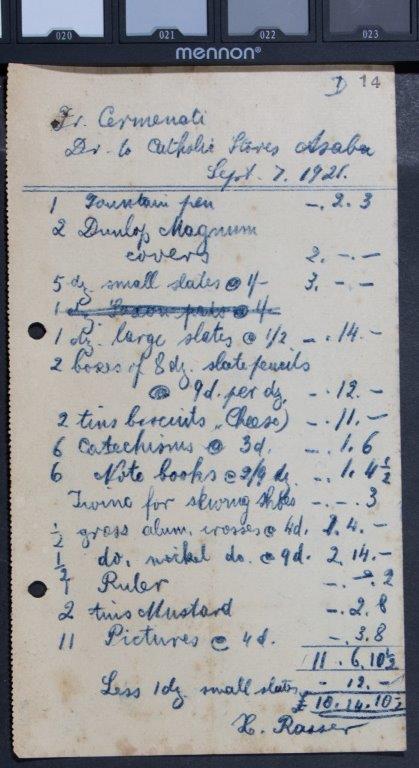 020 021 022 023
mennon®
D 14
Fr. Cermenati
Dr. to Catholic Stores Asaba
Sept. 7. 1921.
1 Fountain pen -. 2. 3
2 Dunlop Magnum
covers 2. -. -
5 dz small slates @ 1/- 3. -. -
1 dz. @ 4/-
1 dz. large slates @ 1/2 -. 14. -
2 boxes of 8 dz. slate pencils
@ 9d. per dz. -. 12. -
2 tins biscuits „Cheese) -. 11. -
6 Catechisms @ 3d. -. 1. 6
6 Note books @ 2/9 dz -. 1. 4½
Twine for -. -. 3
½ gross alum. crosses @ 4d. 1. 4. -
½ do. nickel do. @ 9d. 2. 14. -
1 Ruler -. -. 2
2 tins Mustard -. 2. 8
11 Pictures @ 4d. -. 3. 8
11. 6. 10½
Less 1 dz small slates - 12. -
£ 10. 14. 10½
X. Rasser